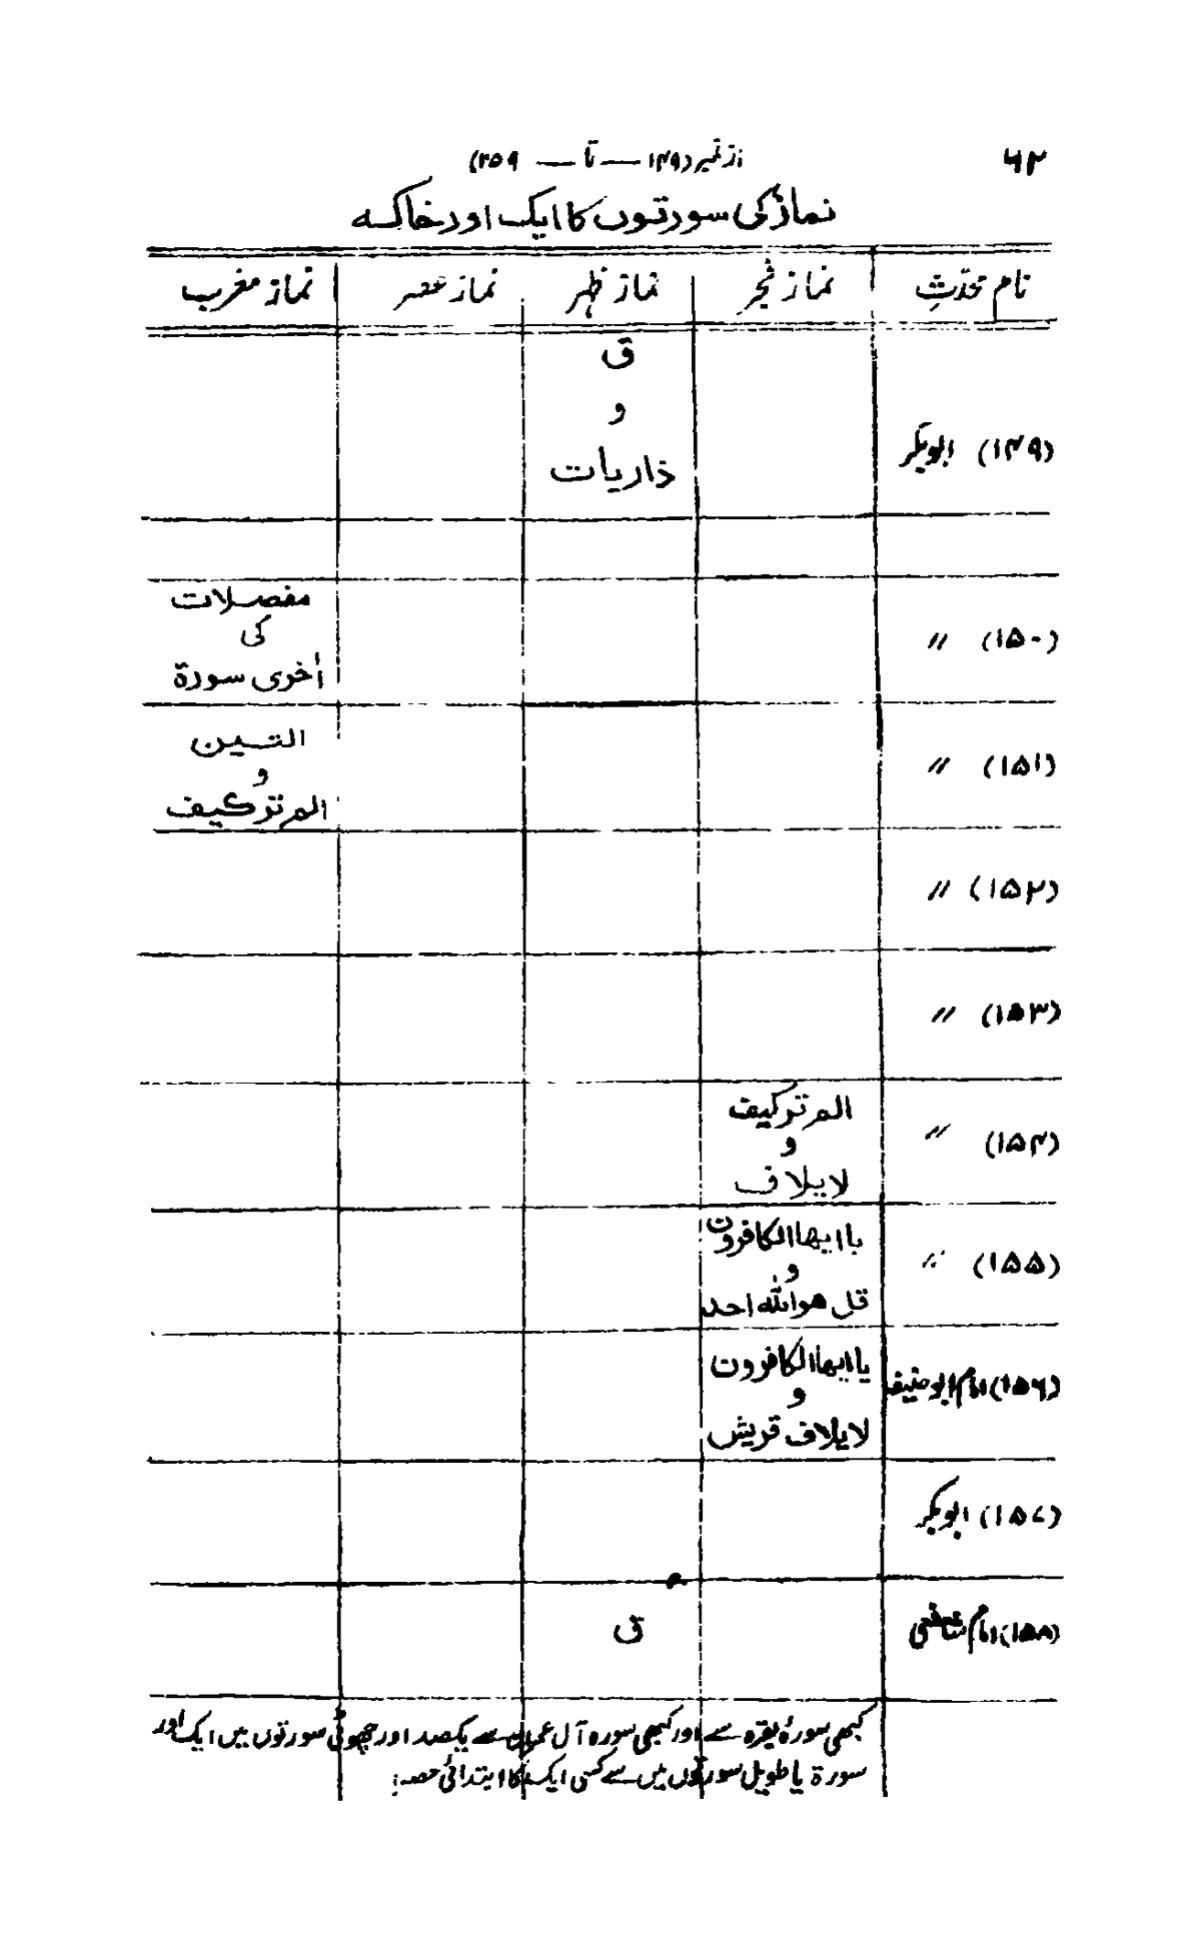 ۶۲
از نمبر (۱۴۹ — تا — ۲۵۹)
نماز کی سورتوں کا ایک اور خاکہ
نام محدّث نماز فجر نماز ظہر نماز عصر نماز مغرب
(۱۴۹) ابوبکر
ق
و
ذاریات
(۱۵۰) //
مفصلات
کی
اُخری سورۃ
(۱۵۱) //
التین
و
الم ترکیف
(۱۵۲) //
(۱۵۳) //
(۱۵۴) //
الم ترکیف
و
لایلاف
(۱۵۵) //
یا ایھا الکافرون
و
قل ھو اللہ احد
(۱۵۶) امام ابو حنیفہ
یا ایھا الکافرون
و
لایلاف قریش
(۱۵۷) ابوبکر
(۱۵۸) امام شافعی
ق
کبھی سورۂ بقرہ سے اور کبھی سورہ آل عمران سے یکصد اور چھوٹی سورتوں میں ایک اور
سورۃ یا طویل سورتوں میں سے کسی ایک کا ابتدائی حصہ!